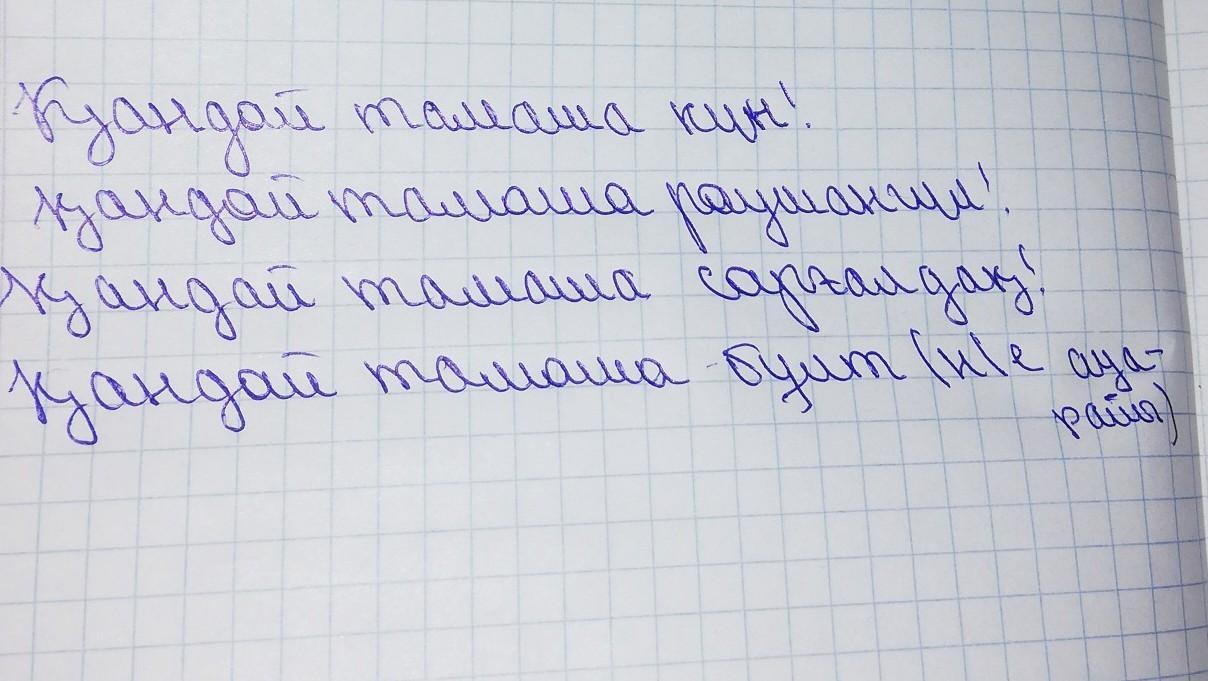 Қандай тамаша күн!
қандай тамаша раушангүл!
Қандай тамаша сарғалдақ!
Қандай тамаша бұлт (н/е ауа-
райы)